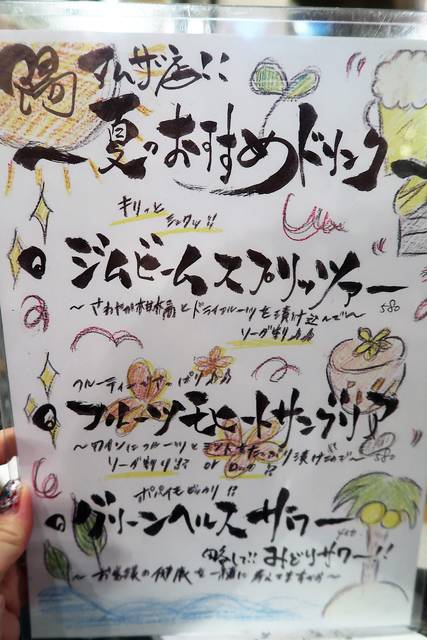 陽 アムザ店!!
夏のおすすめドリンク
キリッと
シュワッ!!
ジムビームスプリッツァー
～さわやか柑橘とドライフルーツを漬け込んで～ 580
ソーダ割り
フルーティーサワー
フルーツモヒートサングリア
～ワインにフルーツとミントをたっぷり漬け込んで～ 580
ソーダ割り!? or ロック!?
ポパイもびっくり!?
グリーンヘルスサワー
略して!! みどりサワー!!
～お客様の健康を一緒に考えてますから～